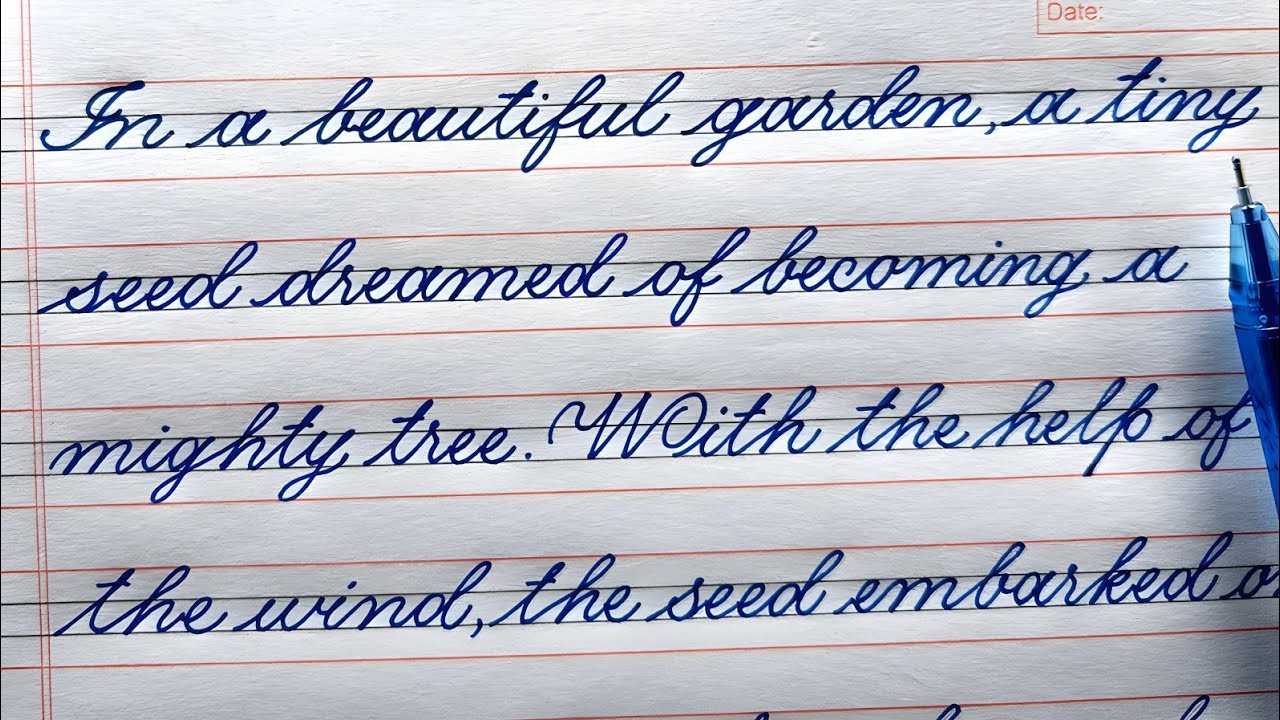 Date:
In a beautiful garden, a tiny
seed dreamed of becoming a
mighty tree. With the help of
the wind, the seed embarked